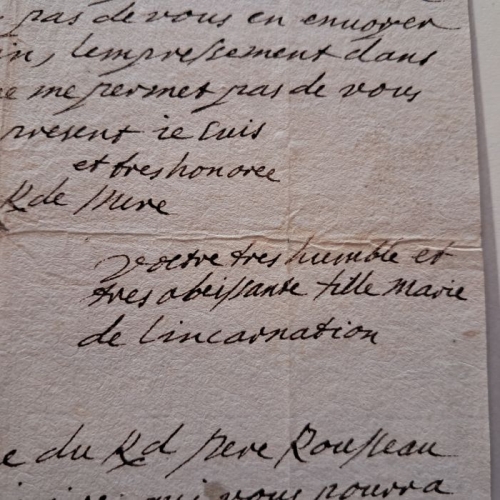 pas de vous en enuoyer
in, lempressement dans
me permet pas de vous
present ie suis
et tres honoree
Rde Mere
vostre tres humble et
tres obeissante fille marie
de lincarnation
e du Rd pere Rousseau
qui vous pourra